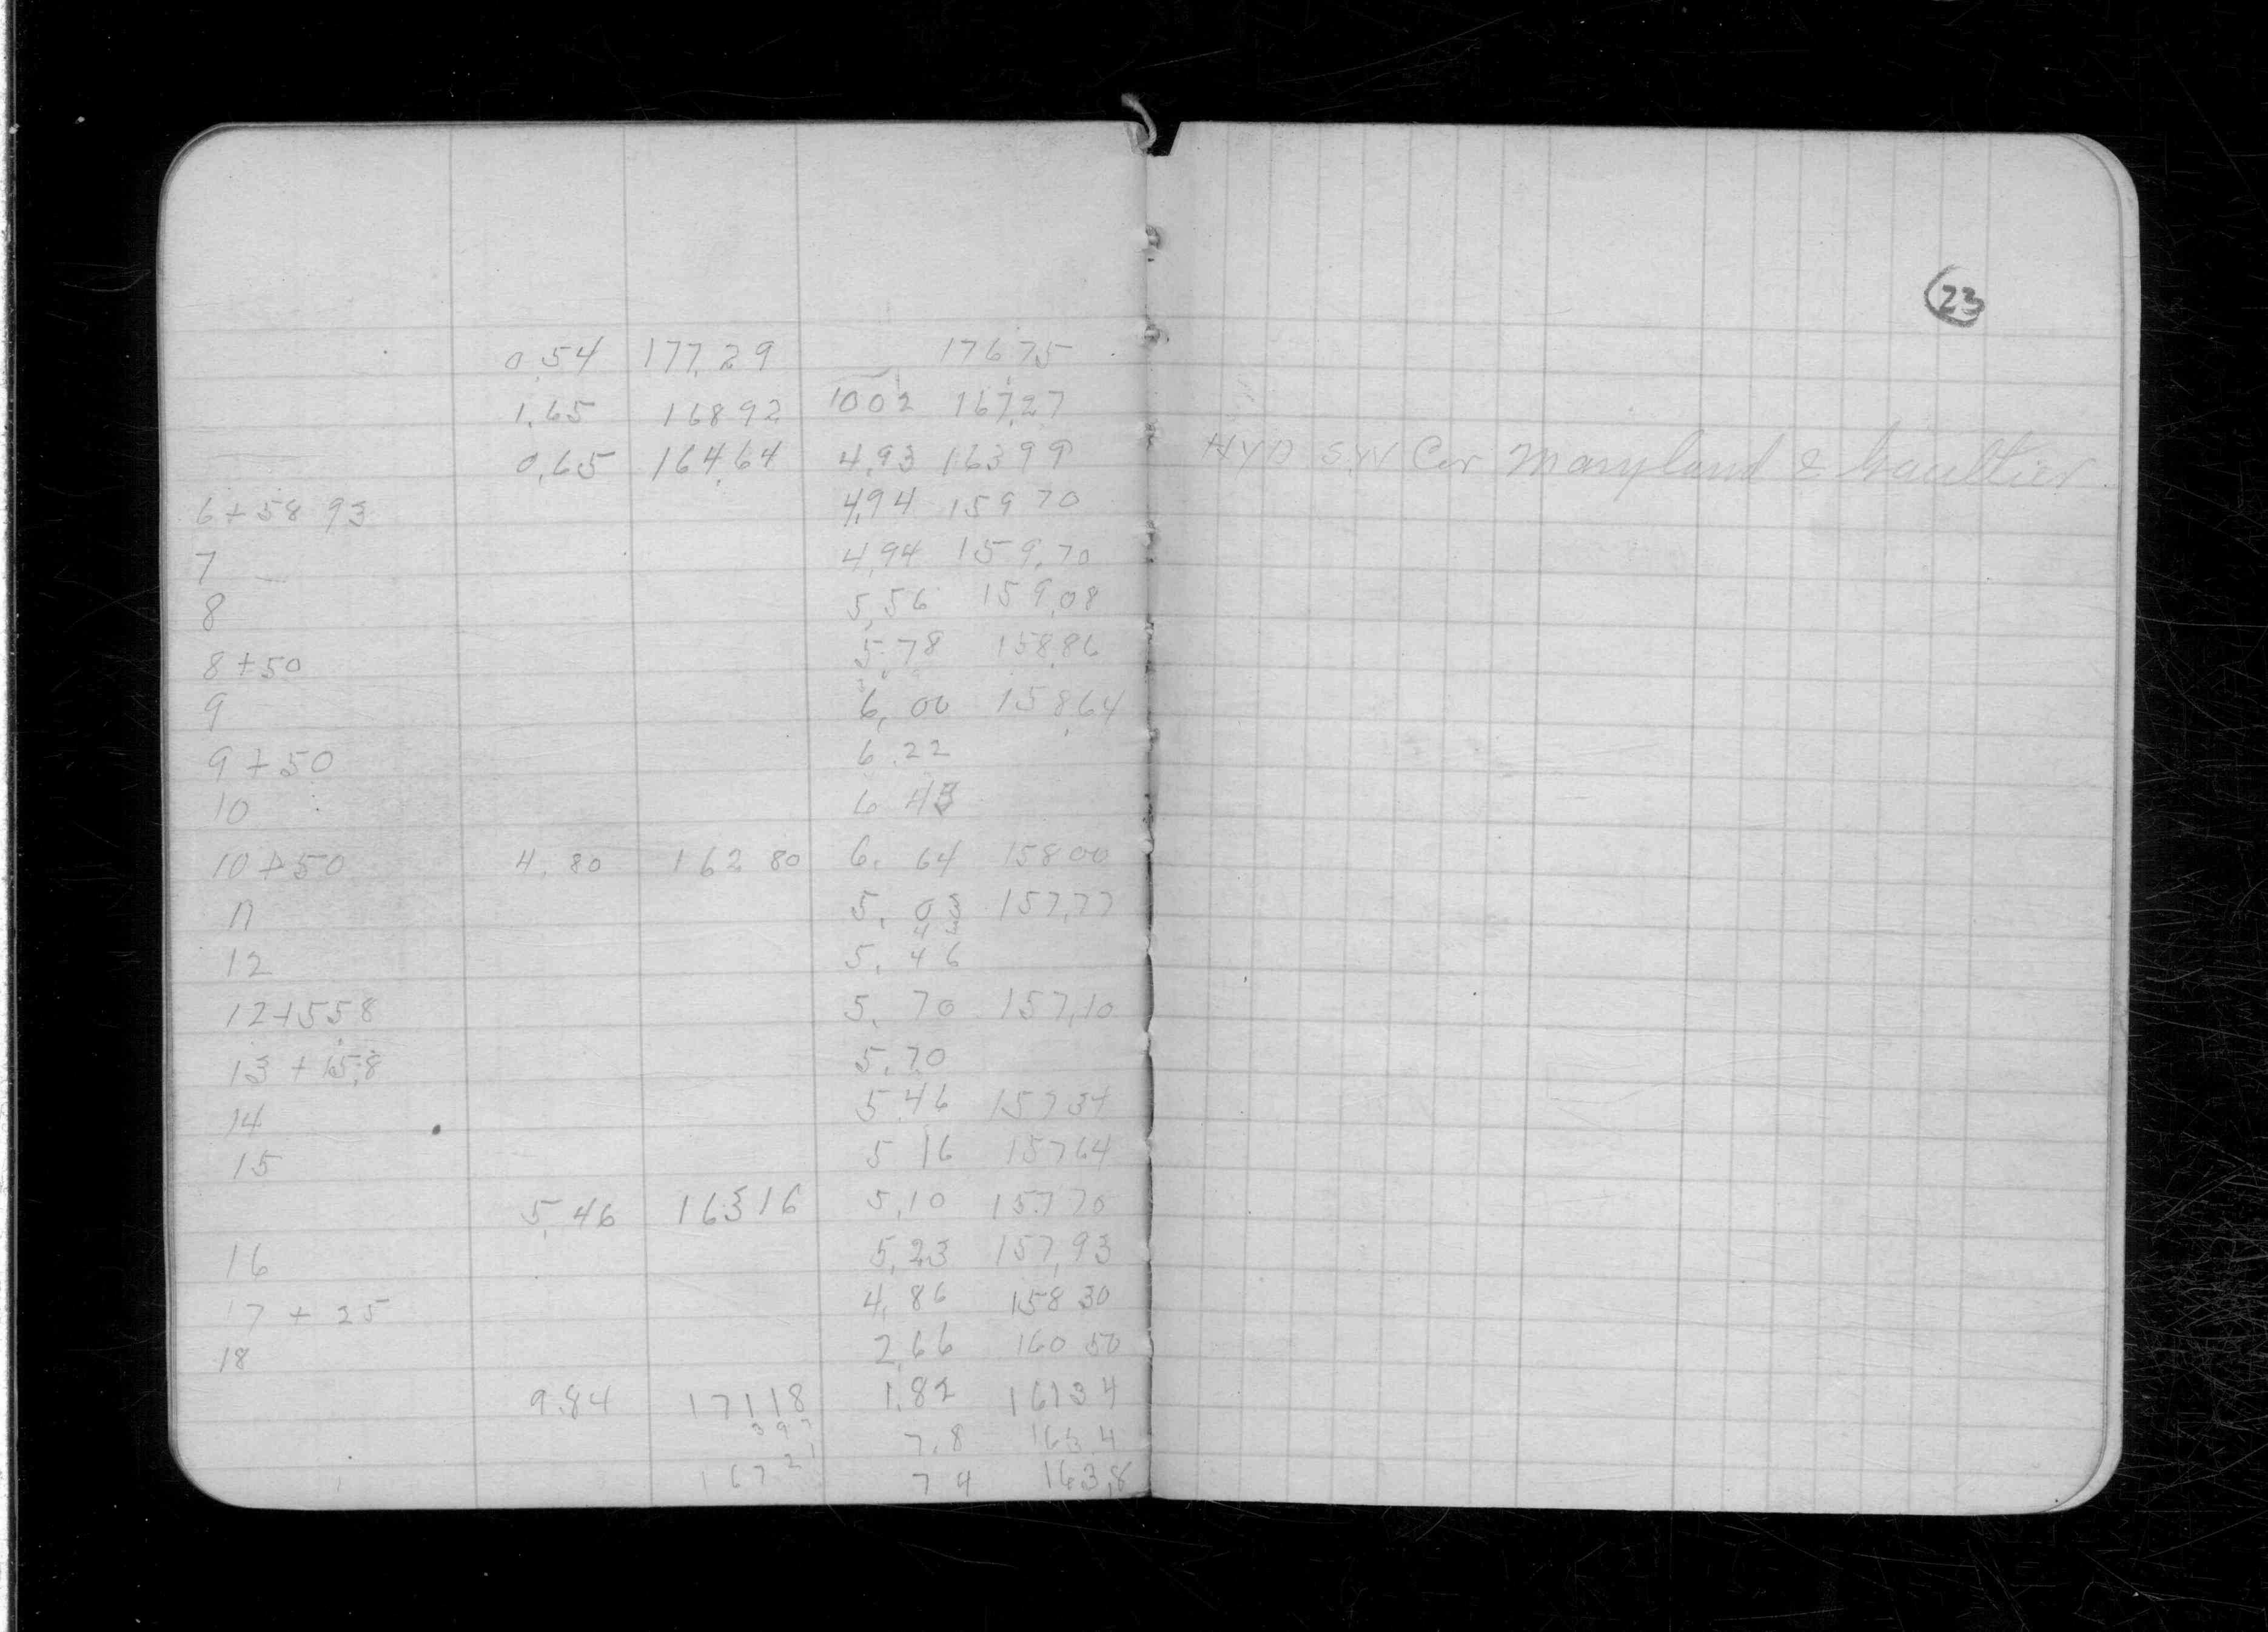 0.54 177.29 176.75
1.65 168.92 10 02 167.27
0.65 164.64 4.93 163 99
6+58 93 4.94 159 70
7 4.94 159.70
8 5.56 159.08
8+50 5.78 158.86
9 6.00 158.64
9+50 6.22
10 6 43
10+50 4.80 162 80 6.64 158 00
11 5.03 157.77
12 5.46
12+558 5.70 157.10
13+ 5.70
14 5.46 157 34
15 5 16 157 64
5.46 163 16 5.10 157 70
16 5.23 157.93
17 + 25 4.86 158 30
18 2.66 160 50
9.84 171 18 1.82 161 34
7.8 163.4
167 21 7 4 163.8
23
HYD SW Cor Maryland & Gaultier